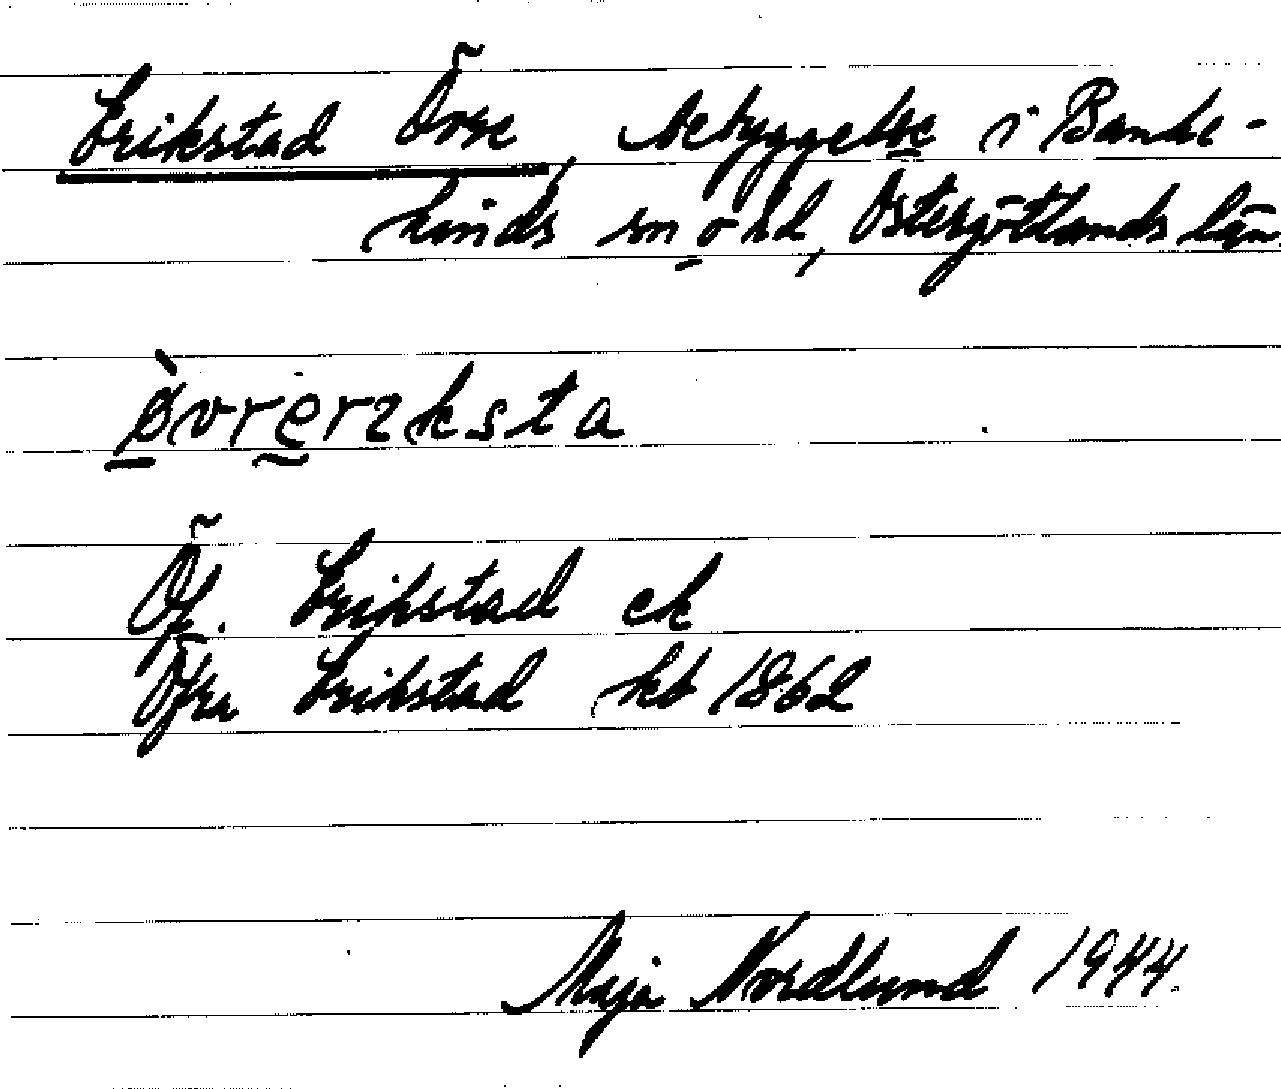 Erikstad Övre, bebyggelse i Banke-
kinds sn o hd, Östergötlands län
ø̀vrerıksta
Öf. Erikstad ek
Öfra Erikstad kb 1862
Maja Nordlund 1944.